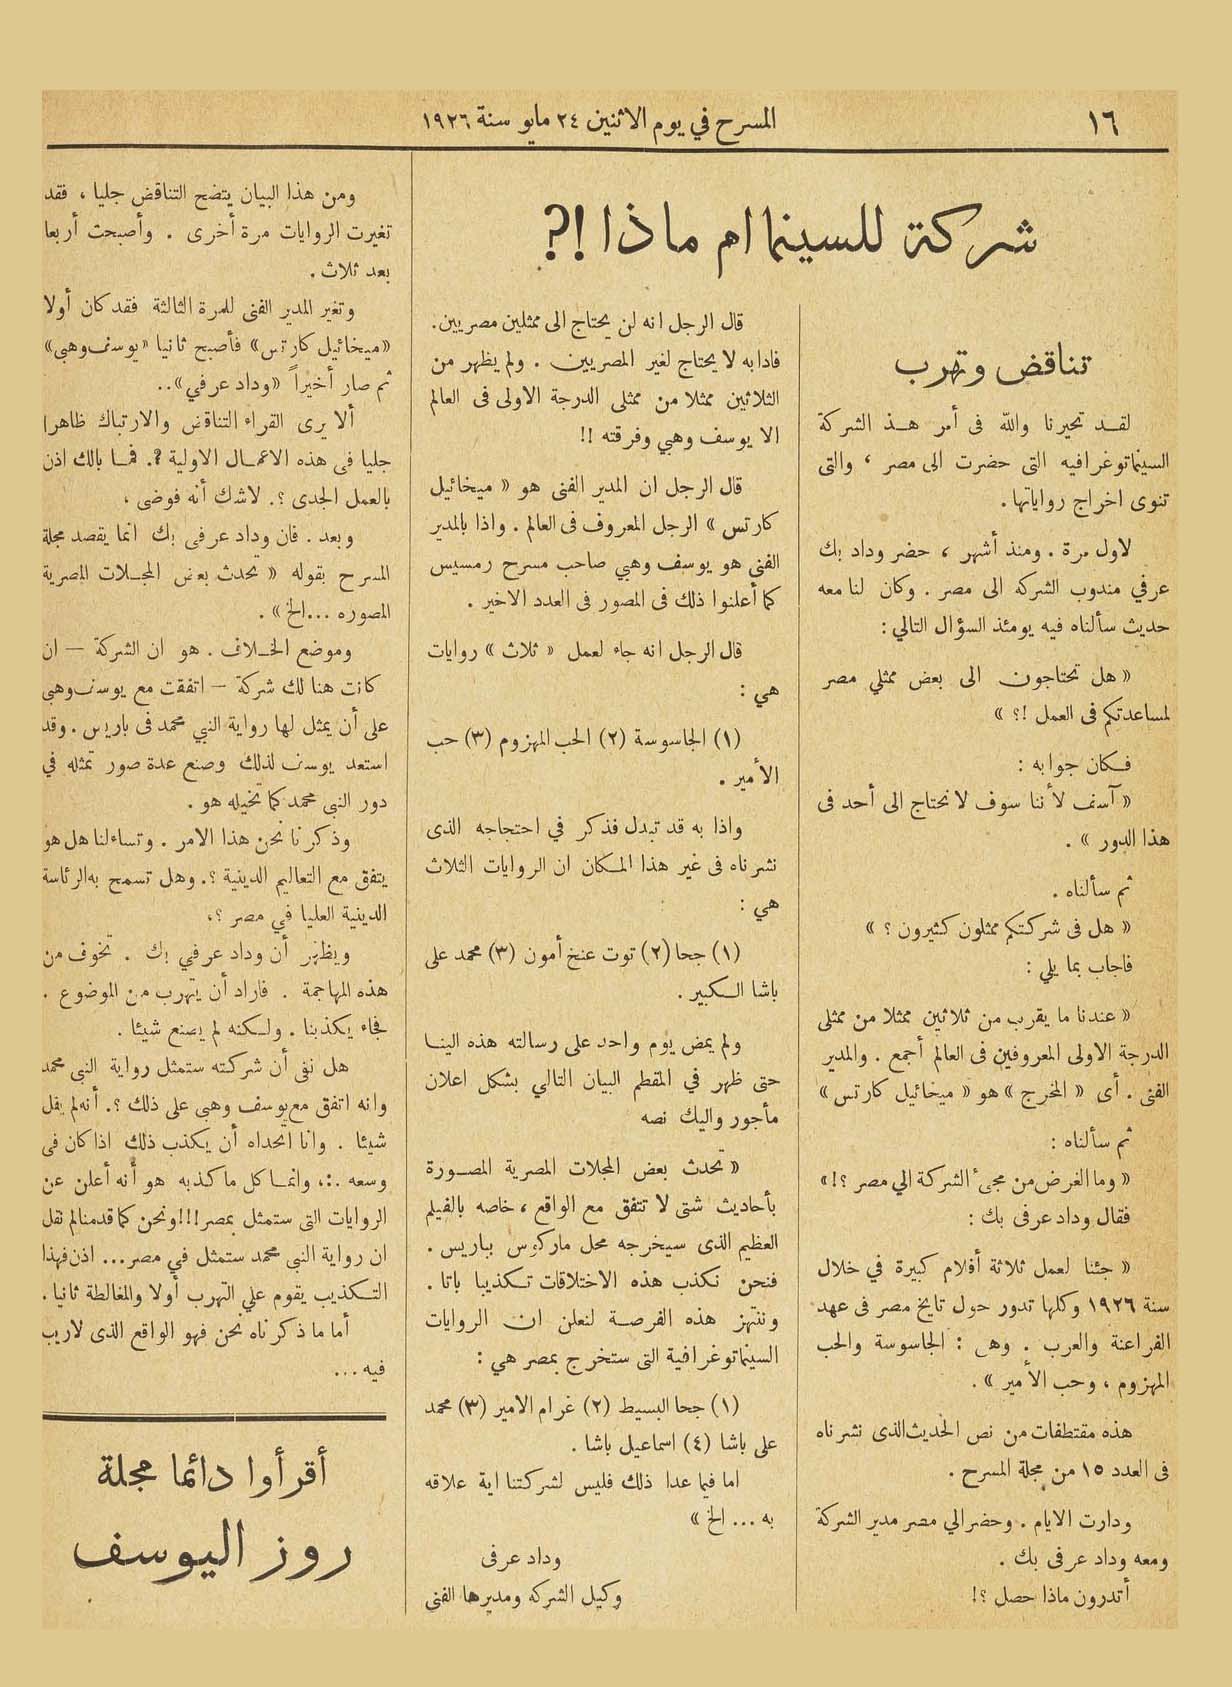 ١٦
المسرح في يوم الاثنين ٢٤ مايو سنة ١٩٢٦
شركة للسينما ام ماذا !?
تناقض وتهرب
لقد تحيرنا والله فى أمر هذ الشركة
السينماتوغرافيه التى حضرت الى مصر ، والتى
تنوى اخراج رواياتها .
لاول مرة . ومنذ أشهر ، حضر وداد بك
عرفي مندوب الشركه الى مصر . وكان لنا معه
حديث سألناه فيه يومئذ السؤال التالي :
« هل تحتاجون الى بعض ممثلي مصر
لمساعدتكم فى العمل !؟ »
فكان جوابه :
« آسف لأننا سوف لا نحتاج الى أحد فى
هذا الدور » .
ثم سألناه .
« هل فى شركتكم ممثلون كثيرون ؟ »
فاجاب بما يلي :
« عندنا ما يقرب من ثلاثين ممثلا من ممثلى
الدرجة الاولى المعروفين فى العالم أجمع . والمدير
الفنى . أى « المخرج » هو « ميخائيل كارتس »
ثم سألناه :
« وما الغرض من مجئ الشركة الي مصر ؟!»
فقال وداد عرفى بك :
« جئنا لعمل ثلاثة أفلام كبيرة في خلال
سنة ١٩٢٦ وكلها تدور حول تايخ مصر فى عهد
الفراعنة والعرب . وهى : الجاسوسة والحب
المهزوم ، وحب الأمير » .
هذه مقتطفات من نص الحديث الذى نشرناه
فى العدد ١٥ من مجلة المسرح .
ودارت الايام . وحضر الي مصر مدير الشركة
ومعه وداد عرفى بك .
أتدرون ماذا حصل ؟!
قال الرجل انه لن يحتاج الى ممثلين مصريين .
فاذا به لا يحتاج لغير المصريين . ولم يظهر من
الثلاثين ممثلا من ممثلى الدرجة الاولى فى العالم
الا يوسف وهبي وفرقته !!
قال الرجل ان المدير الفنى هو « ميخائيل
كارتس » الرجل المعروف فى العالم . واذا بالمدير
الفنى هو يوسف وهبي صاحب مسرح رمسيس
كما أعلنوا ذلك فى المصور فى العدد الاخير .
قال الرجل انه جاء لعمل « ثلاث » روايات
هي :
(١) الجاسوسة (٢) الحب المهزوم (٣) حب
الأمير .
واذا به قد تبدل فذكر في احتجاجه الذى
نشرناه فى غير هذا المكان ان الروايات الثلاث
هي :
(١) جحا (٢) توت عنخ أمون (٣) محمد على
باشا الكبير .
ولم يمض يوم واحد على رسالته هذه الينا
حتى ظهر في المقطم البيان التالي بشكل اعلان
مأجور واليك نصه
« تحدث بعض المجلات المصرية المصورة
بأحاديث شتى لا تتفق مع الواقع ، خاصه بالفيلم
العظيم الذى سيخرجه محل ماركوس بباريس .
فنحن نكذب هذه الاختلاقات تكذيبا باتا .
وننتهز هذه الفرصة لنعلن ان الروايات
السينماتوغرافية التى ستخرج بمصر هي :
(١) جحا البسيط (٢) غرام الامير (٣) محمد
على باشا (٤) اسماعيل باشا .
اما فيما عدا ذلك فليس لشركتنا اية علاقه
به ... الخ »
وداد عرفى
وكيل الشركه ومديرها الفنى
ومن هذا البيان يتضح التناقض جليا ، فقد
تغيرت الروايات مرة أخرى . وأصبحت أربعا
بعد ثلاث .
وتغير المدير الفنى للمرة الثالثة فقد كان أولا
«ميخائيل كارتس» فأصبح ثانيا «يوسف وهبي»
ثم صار أخيراً «وداد عرفي»..
ألا يرى القراء التناقض والارتباك ظاهرا
جليا فى هذه الاعمال الاولية ?. فما بالك اذن
بالعمل الجدى ؟. لاشك أنه فوضى ،
وبعد . فان وداد عرفى بك انما يقصد مجلة
المسرح بقوله « تحدث بعض المجلات المصرية
المصوره ... الخ » .
وموضع الخلاف . هو ان الشركة — ان
كانت هنا لك شركة — اتفقت مع يوسف وهبى
على أن يمثل لها رواية النبي محمد فى باريس . وقد
استعد يوسف لذلك وصنع عدة صور تمثله في
دور النبى محمد كما تخيله هو .
وذكرنا نحن هذا الامر . وتساءلنا هل هو
يتفق مع التعاليم الدينية ؟. وهل تسمح به الرئاسة
الدينية العليا في مصر ؟،
ويظهر أن وداد عرفي بك . تخوف من
هذه المهاجمة . فاراد أن يتهرب من الموضوع .
فجاء يكذبنا . ولكنه لم يصنع شيئا .
هل نفى أن شركته ستمثل رواية النبى محمد
وانه اتفق مع يوسف وهبى على ذلك ؟. أنه لم يقل
شيئا . وانا اتحداه أن يكذب ذلك اذا كان فى
وسعه .:، وانما كل ما كذبه هو أنه أعلن عن
الروايات التى ستمثل بمصر!!! ونحن كما قدمنا لم نقل
ان رواية النبى محمد ستمثل في مصر... اذن فهذا
التكذيب يقوم علي التهرب أولا والمغالطة ثانيا .
أما ما ذكرناه نحن فهو الواقع الذى لاريب
فيه ...
أقرأوا دائما مجلة
روز اليوسف